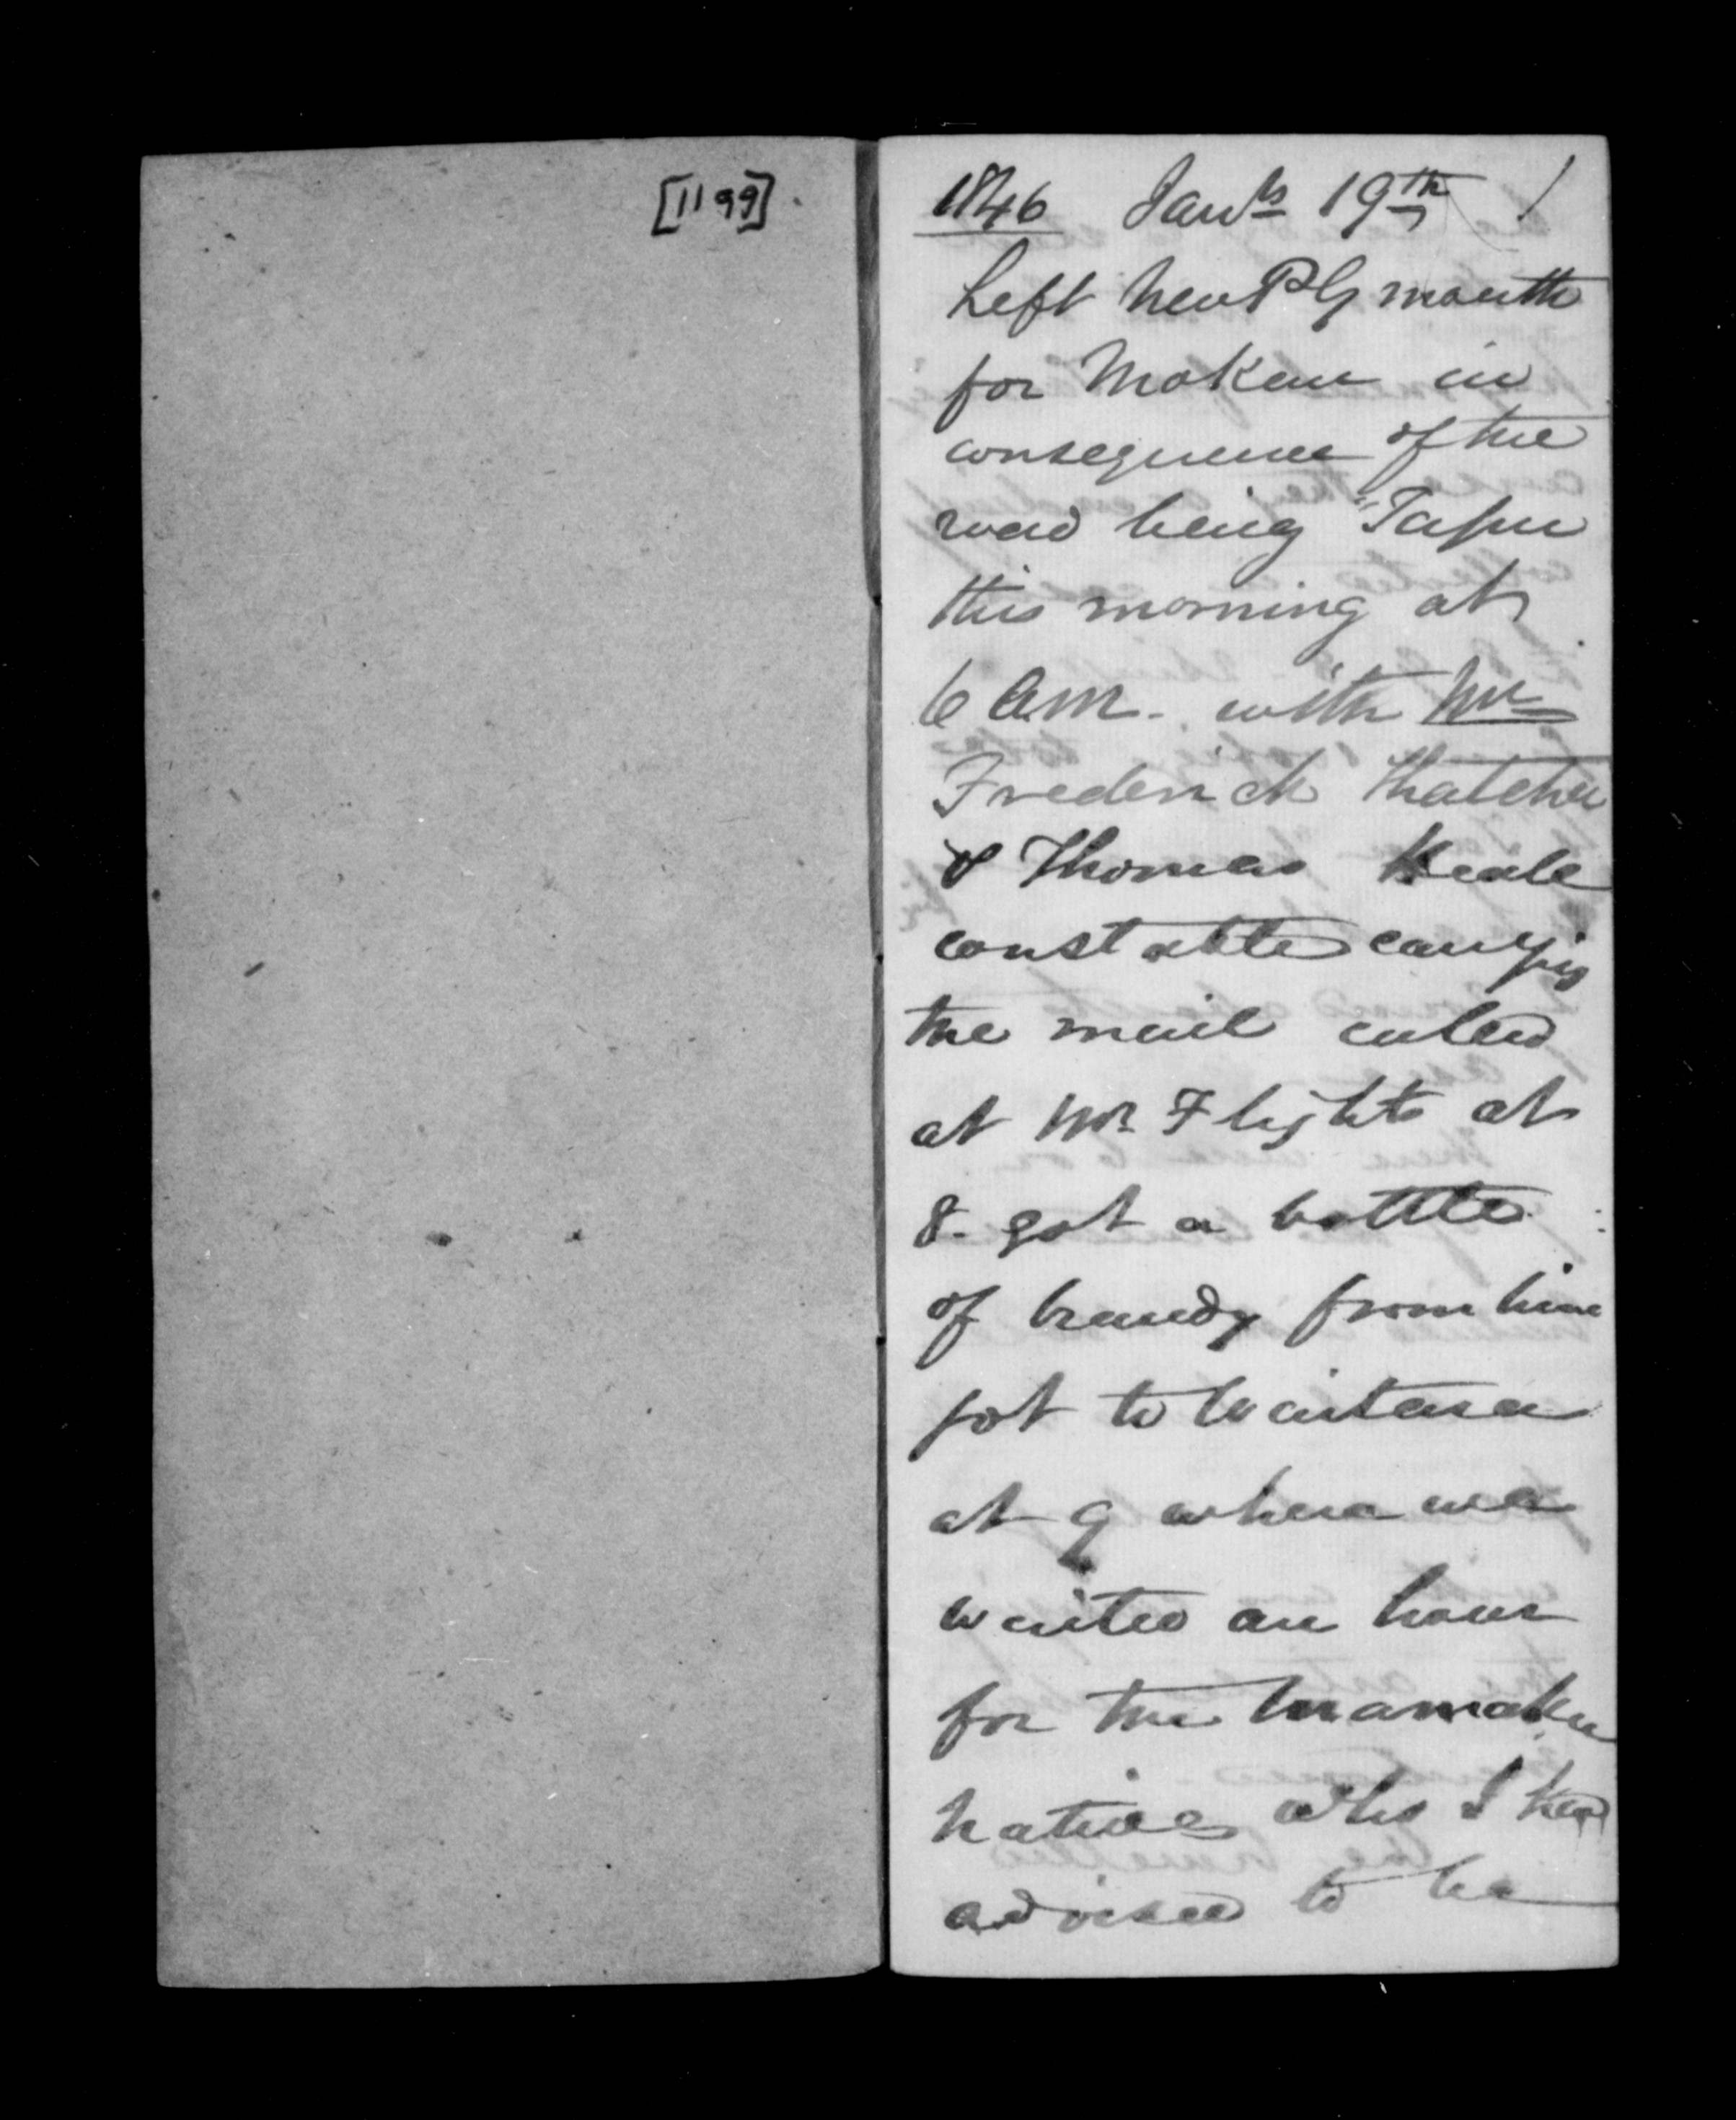 [1199].
1846 Jany 19th 1
Left New Plymouth
for Mokau in
consequence of the
road being "Tapu
this morning at
6 A.M. with Mr
Frederick Thatcher
& Thomas
constable carrying
the mail called
at Mr Flights at
8. got a bottle
of brandy from him
got to Waitara
at 9 where we
waited an hour
for the
natives who I had
advised to be